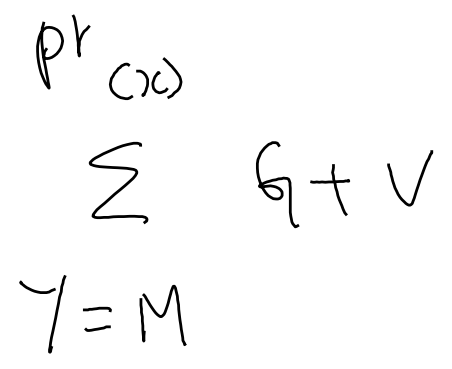 pr(x)
Σ G+V
Y=M